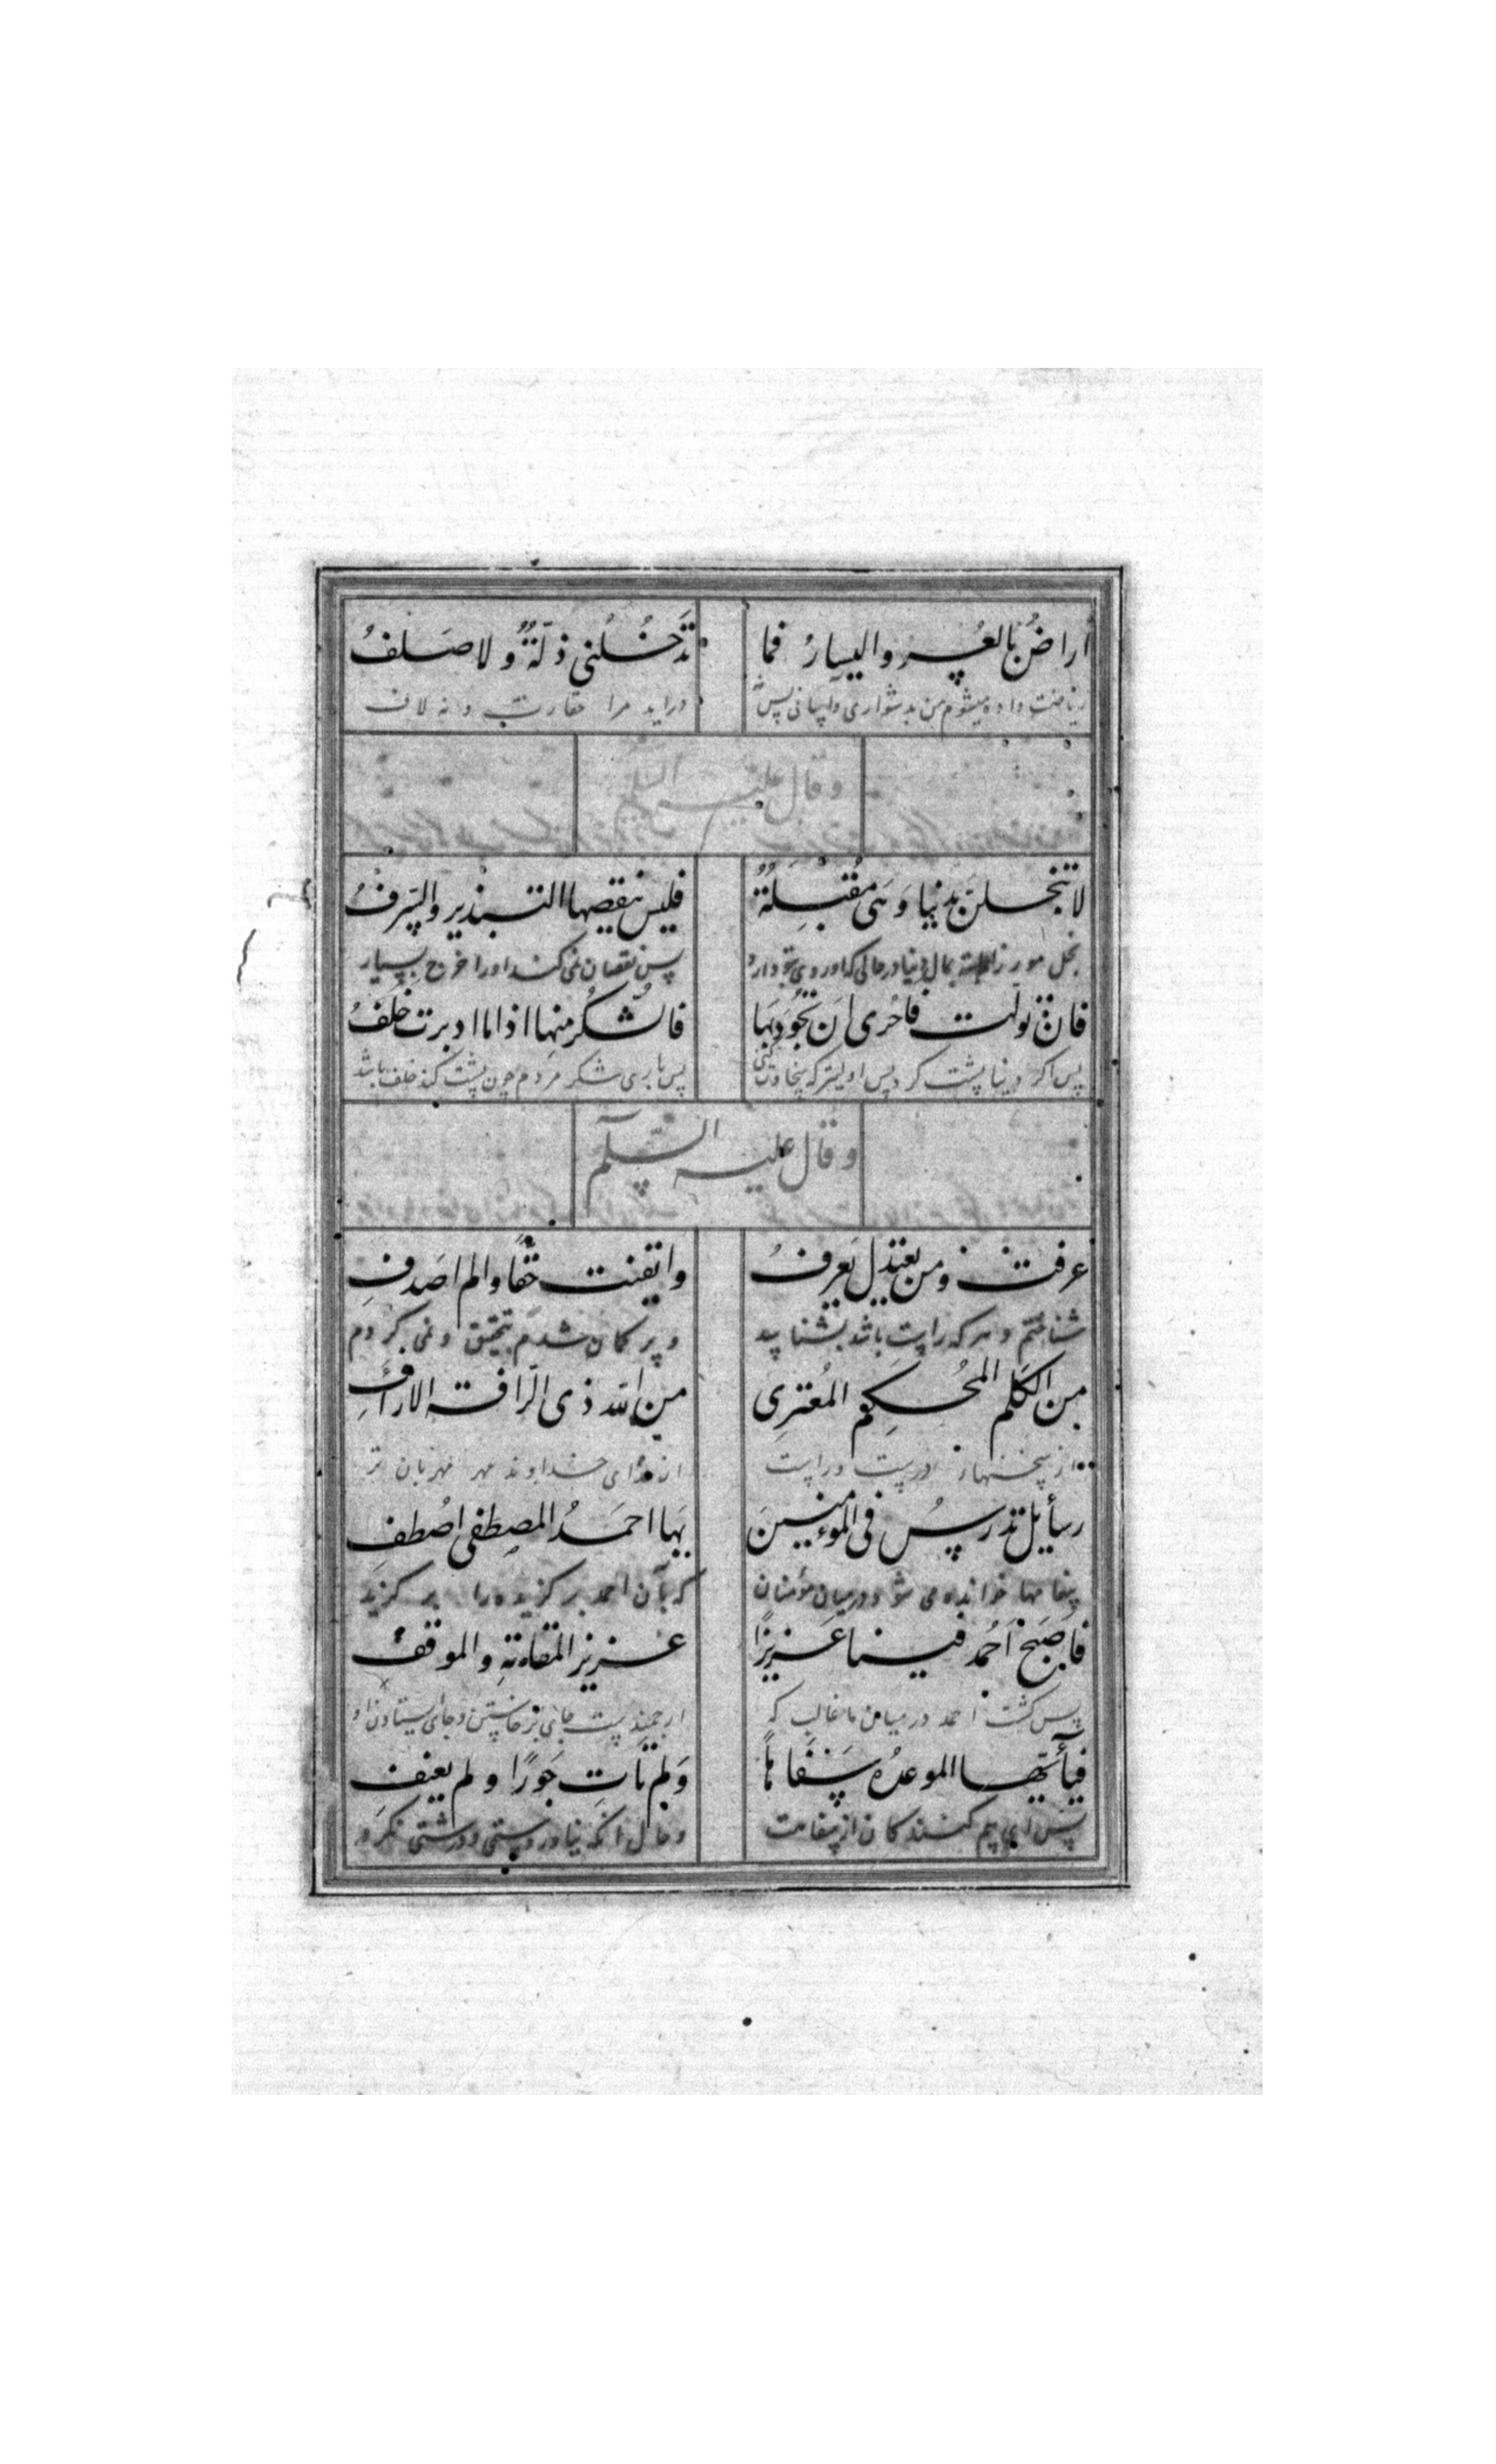 اراضُ بالعُسر والیسارُ فما تدَخُلُنی ذلّةٌ ولا صَلفُ
ریاضت داده میشوم من بدشواری وآسانی پس نه دراید مرا حقارت و نه لاف
وقال علیه السلم
لا تبخلنّ بدنیا وَهی مُقبِلَةٌ فلیس ینقصها التبذیر والسَرفُ
بخل مورز بمال دنیا در حالی که او روی بتو دارد پس نقصان نمی کند او را خرج بسیار
فان تولّت فاحُری اَن تجُودَ بهَا فالشُکر منها اذا ما ادبرت خلَفُ
پس اگر دنیا پشت کرد پس اولیتر که سخاوت کنی پس باری شکر مردم چون پشت کند خلف باشد
وقال علیه السّلم
عرفت ومن یعتدِل یَعرِفُ وایقنت حقًا ولم اصَدفِ
شناختم وهرکه راست باشد بشناسد و پر کمان شدم بتحقیق و نمی کردم
مِن الکَلم المُحکِم المُعترِی من الله ذی الرّافة الاراَفِ
از سخنها از خدای خداوند مهر مهربان تر
رسأیل تدرسُ فی الموءمنینَ بهَا احمَدُ المصطفی اصُطفِ
پیغامها خوانده می شود درمیان مؤمنان که بآن احمد برکزیده را برکزید
فاَصبَح اَحُمد فینا عَزیزًا عزیز المقامةِ والموقفُ
پس کشت احمد درمیان ما غالب که ارجمندست جای برخاستن وجای ایستادن او
فیأیّها الموعدُه سَفَاهاً وَلم تاتِ جَورًا و لم یعنف
پس ای بیم کنندکان از سفاهت وحال انکه نیاورد وستمی ودرشتی نکرد